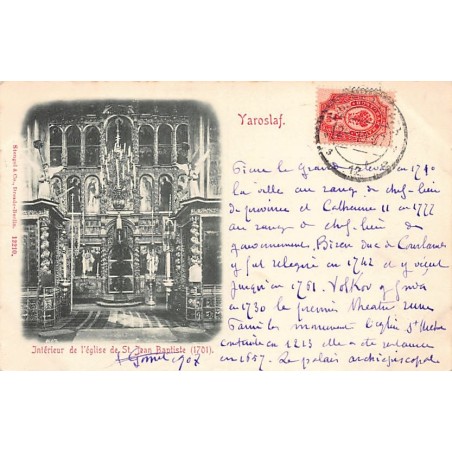 Yaroslaf.
Stengel & Co., Dresde-Berlin. 12210.
Intérieur de l'église de St. Jean Baptiste (1701).
1907
Pierre le Grand éleva en 17
la ville au rang de chef-lieu
de province et Catherine II en 1777
au rang de chef-lieu de
gouvernement. Biren duc de Courlande
y fut relégué en 1742 et y vécut
jusqu'en 1761. Volkov y fonda
en 1750 le premier theatre russe
Parmi les monument l'eglise St
Construite en 1213 elle a été restaurée
en 1657. Le palais archiepiscopale